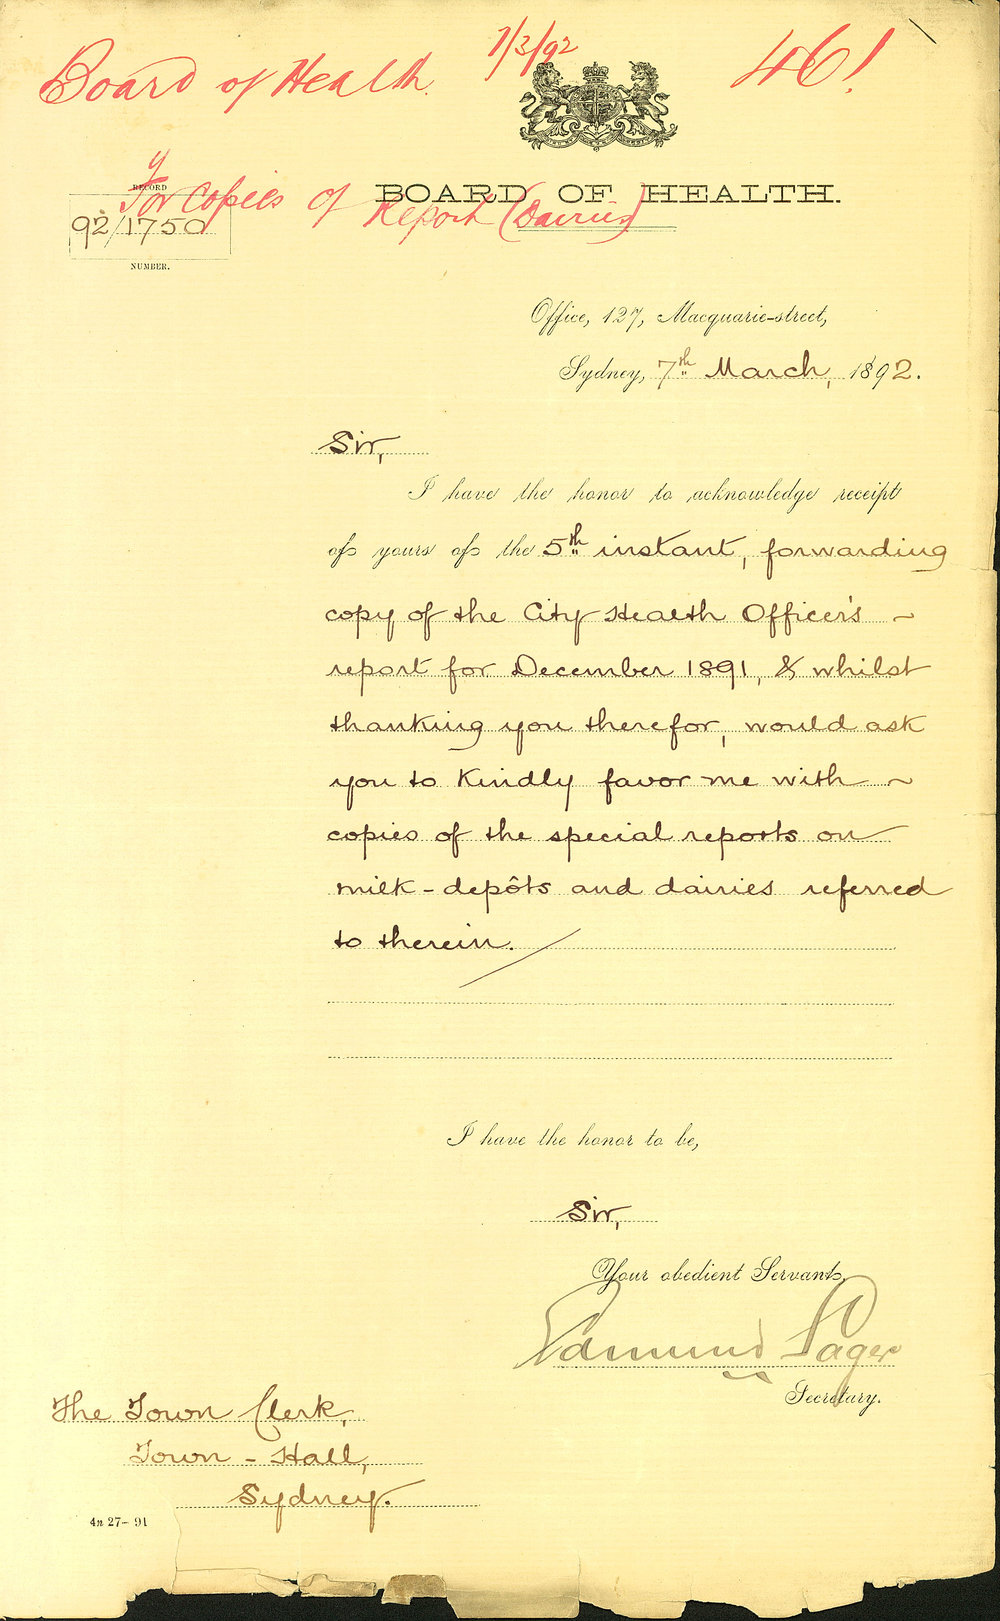 Board of Health.
7/3/92
461
y
For Copies of Report (Dairies)
BOARD OF HEALTH.
RECORD
92/1750
NUMBER.
Office, 127, Macquarie-street,
Sydney, 7th March, 1892.
Sir,
I have the honor to acknowledge receipt
of yours of the 5th instant, forwarding
copy of the City Health Officer's ~
report for December 1891, & whilst
thanking you therefor, would ask
you to kindly favor me with ~
copies of the special reports on
milk-depôts and dairies referred
to therein.
I have the honor to be,
Sir,
Your obedient Servant,
Edmund Sager
Secretary.
The Town Clerk,
Town-Hall,
Sydney.
4n 27-91